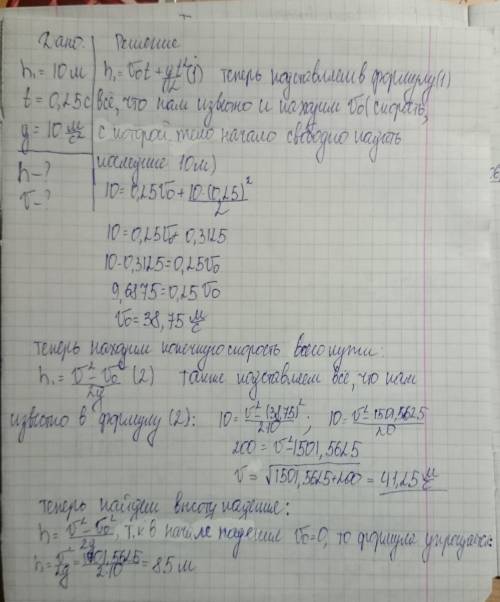 Дано
h₁ = 10 м
t = 0,25 с
g = 10 м/с²
h - ?
v - ?
Решение
h₁ = v₀t + gt²/2 (1) теперь подставляем в формулу (1)
всё, что нам известно и находим v₀ (скорость,
с которой тело начало свободно падать
последние 10 м)
10 = 0,25v₀ + 10·(0,25)²/2
10 = 0,25v₀ + 0,3125
10-0,3125 = 0,25v₀
9,6875 = 0,25v₀
v₀ = 38,75 м/с
теперь находим конечную скорость всего пути:
h₁ = v² - v₀²/2g (2) также подставляем всё, что нам
известно в формулу (2): 10 = v² - (38,75)²/2·10 ; 10 = v² - 1501,5625/20
200 = v² - 1501,5625
v = √1501,5625+200 = 41,25 м/с
теперь найдём высоту падения:
h = v² - v₀²/2g, т.к в начале падения v₀=0, то формула упрощается:
h = v²/2g = 1701,5625/2·10 = 85 м